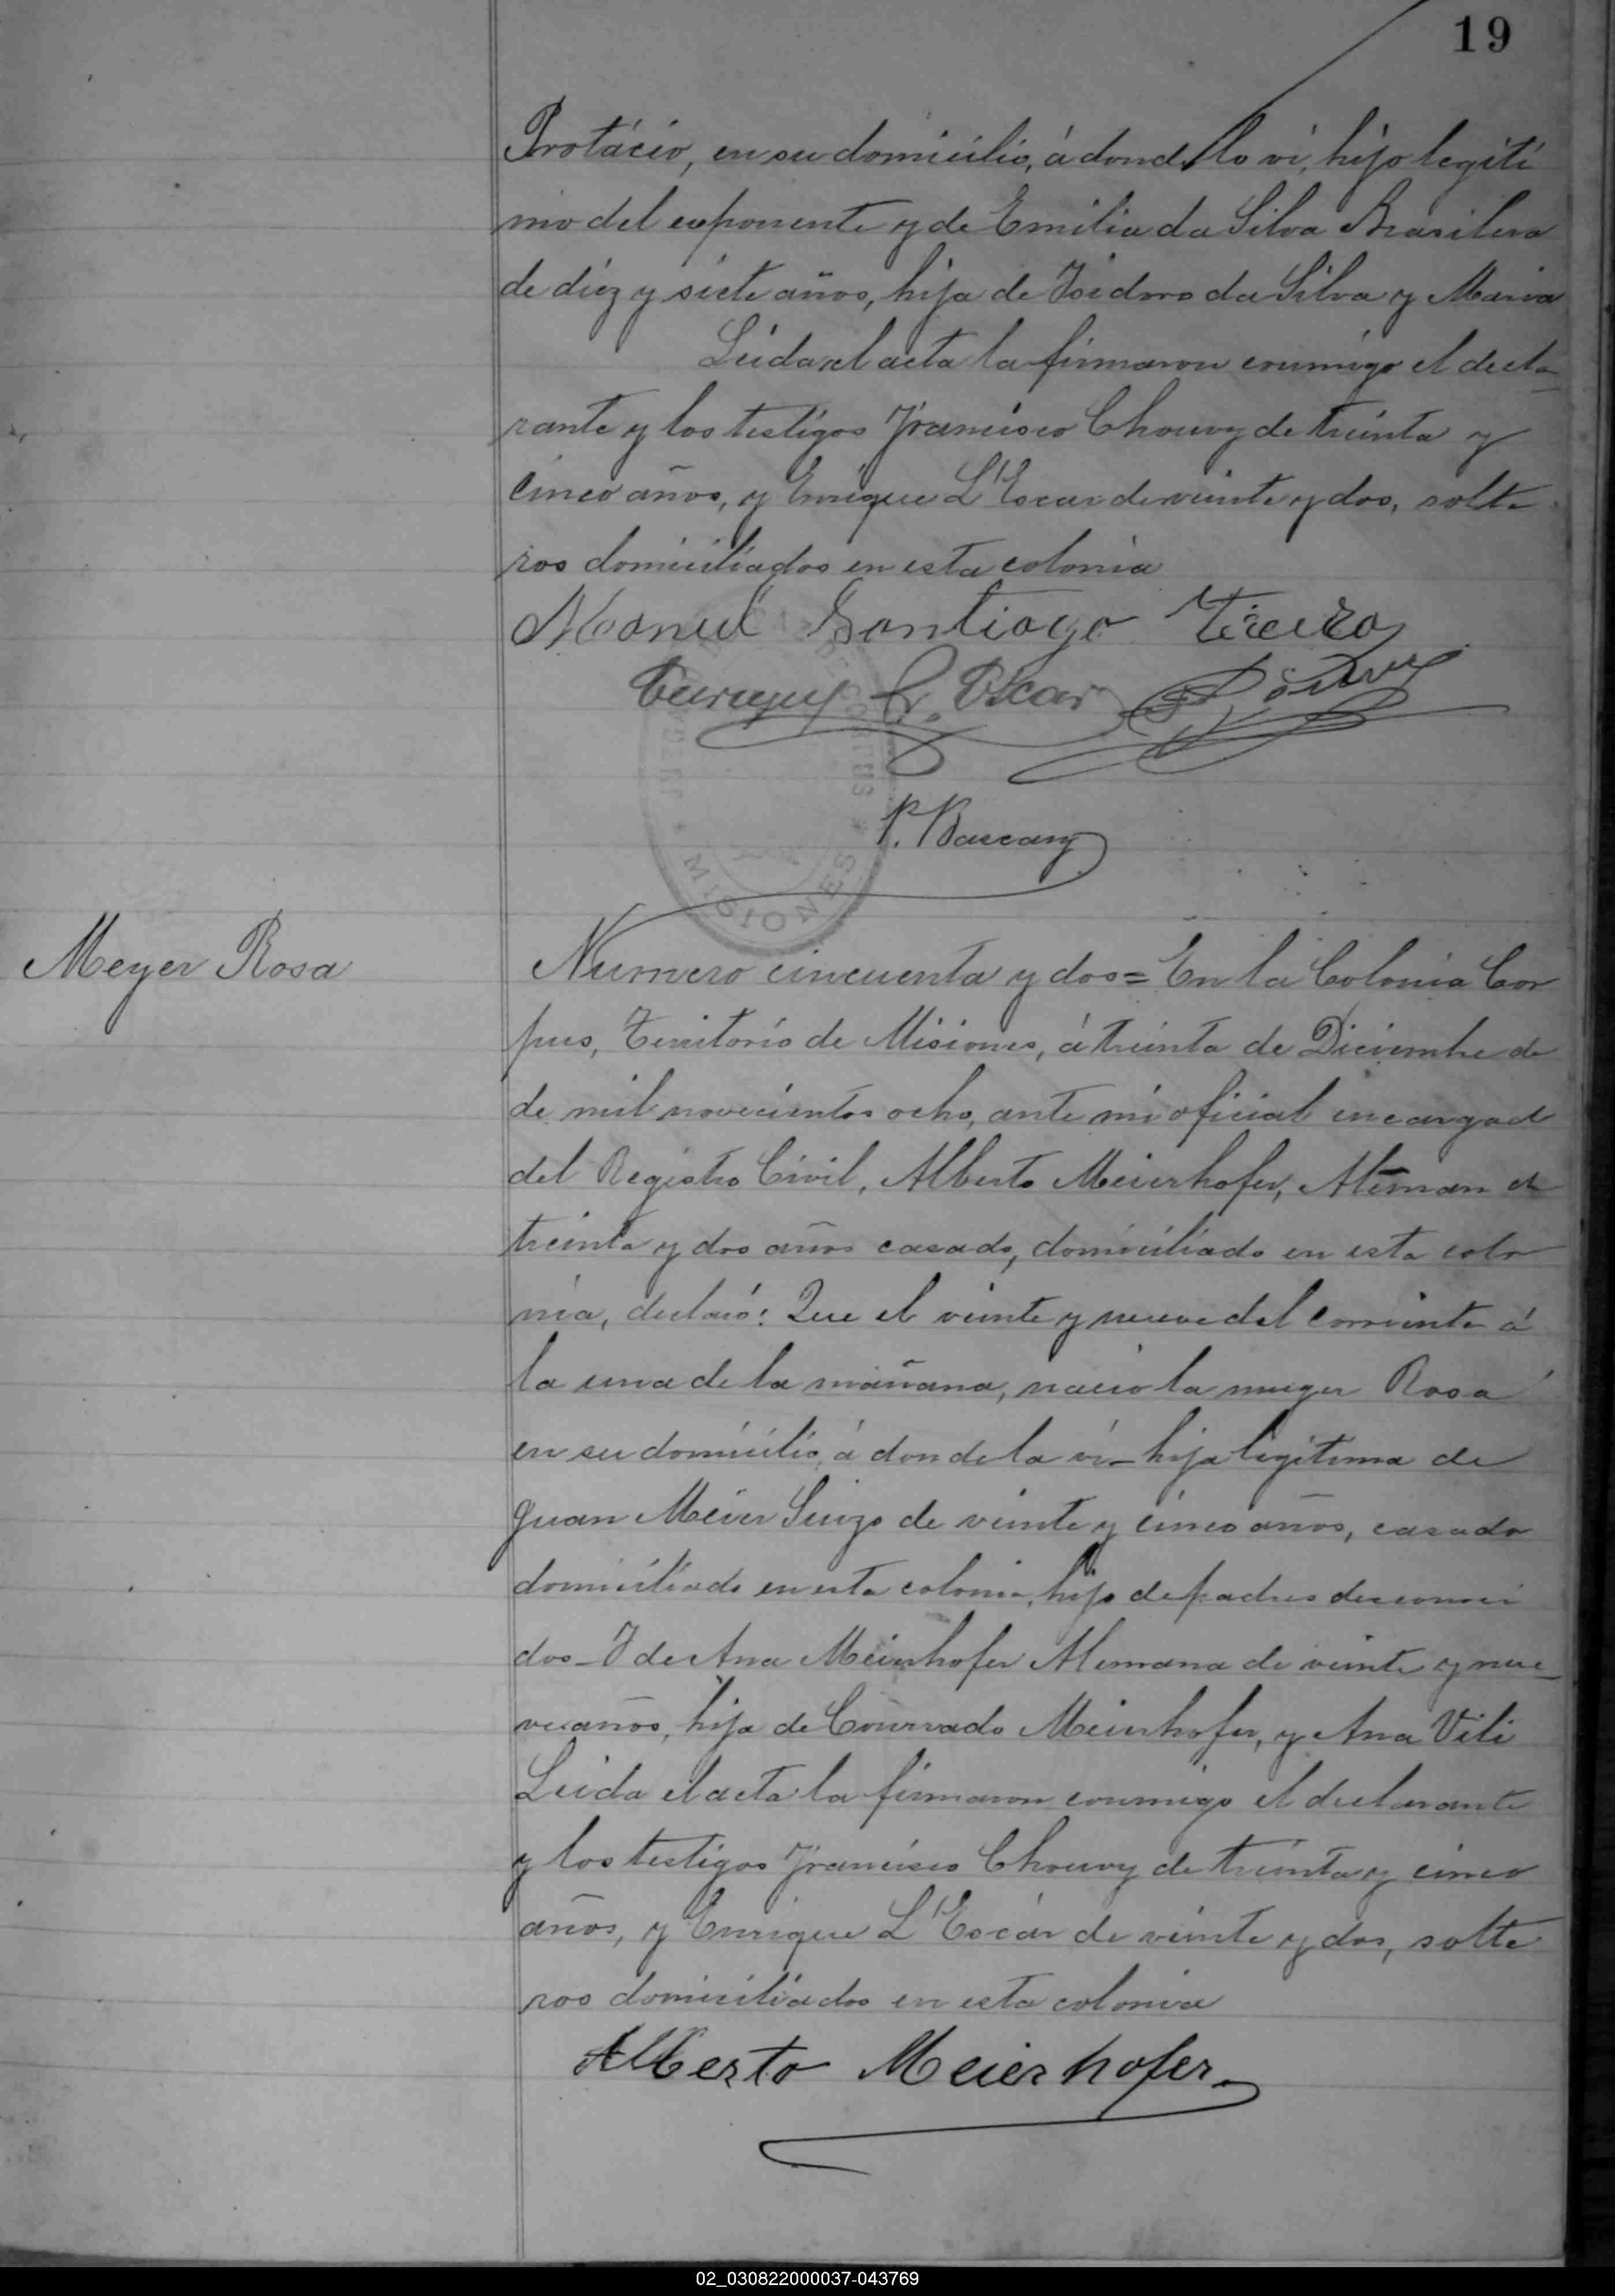 19
Protácio, en su domicilio, á donde lo vi, hijo legiti
mo del exponente y de Emilia da Silva Brasilera
de diez y siete años, hija de Isidoro da Silva y Maria
Leida el acta la firmaron conmigo el decla-
rante y los testigos Francisco Chouvy de treinta y
cinco años, y Enrique L'Escar de veinte y dos, solte
ros domiciliados en esta colonia
Manuel Santiago
L. Escar
P.
MISIONES
Meyer Rosa
Numero cincuenta y dos = En la Colonia Cor
pus, Territorio de Misiones, á treinta de Diciembre de
de mil novecientos ocho, ante mi oficial encargad
del Registro Civil, Alberto Meierhofer, Aleman de
treinta y dos años casado, domiciliado en esta colo
nia, declaró: Que el veinte y nueve del corriente á
la una de la mañana, nacio la muger Rosa
en su domicilio, á donde la vi - hija legitima de
Juan Meier Suizo de veinte y cinco años, casado
domiciliado en esta colonia, hijo de padres desconoci
dos - I de Ana Meierhofer Alemana de veinte y nue-
ve años, hija de Conrrado Meierhofer, y Ana Vili
Leida el acta la firmaron conmigo el declarante
y los testigos Francisco Chouvy de treinta y cinco
años, y Enrique L'Escár de veinte y dos, solte
ros domiciliados en esta colonia
Alberto Meierhofer
02_030822000037-043769